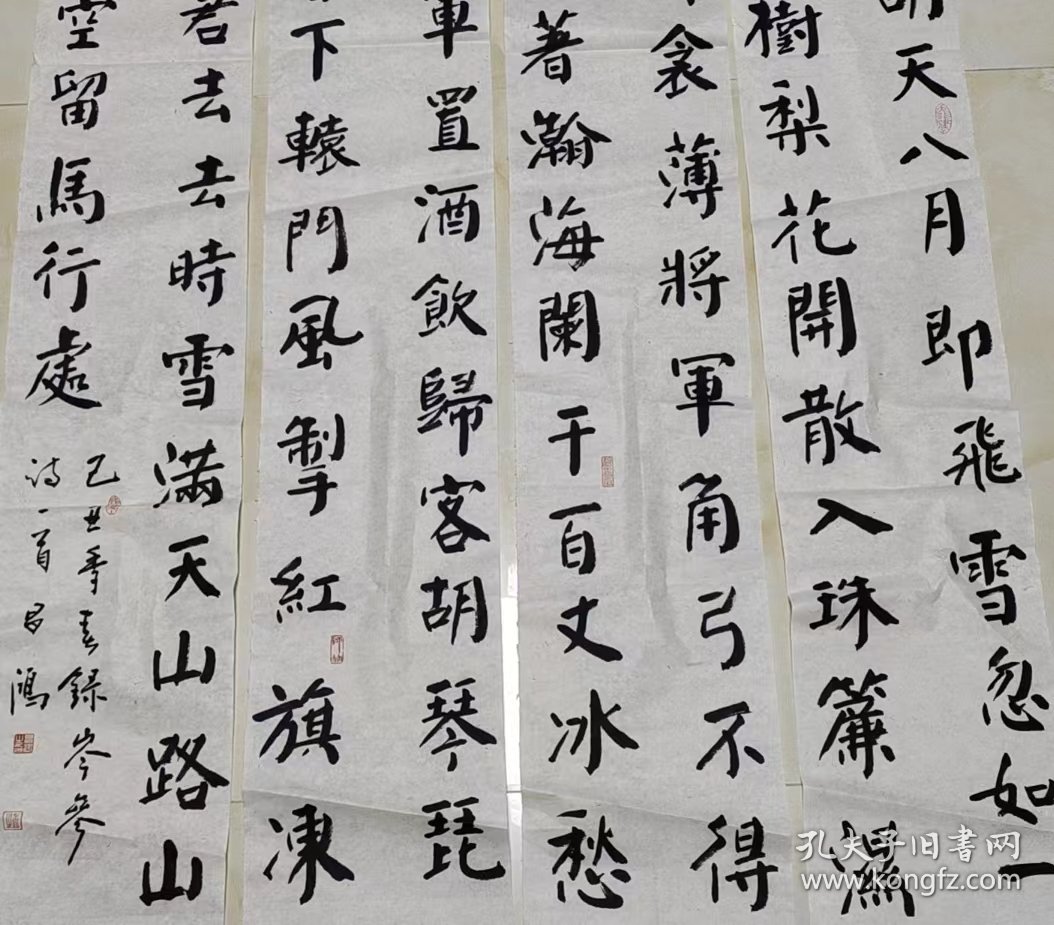 胡天八月即飛雪忽如一
樹梨花開散入珠簾濕
衾薄將軍角弓不得
著瀚海闌干百丈冰愁
軍置酒飲歸客胡琴琵
下轅門風掣紅旗凍
君去去時雪滿天山路山
空留馬行處
己丑年春錄岑參
诗一首 鴻
孔夫子旧书网
www.kongfz.com